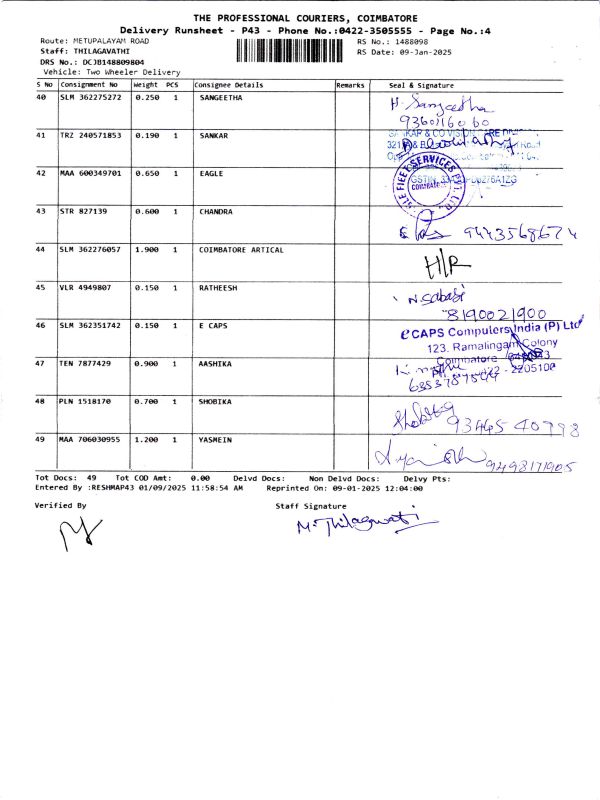 THE PROFESSIONAL COURIERS, COIMBATORE
Delivery Runsheet - P43 - Phone No.:0422-3505555 - Page No.:4
Route: METUPALAYAM ROAD RS No.: 1488098
Staff: THILAGAVATHI RS Date: 09-Jan-2025
DRS No.: DCJB148809804
Vehicle: Two Wheeler Delivery
S No Consignment No Weight PCS Consignee Details Remarks Seal & Signature
40 SLM 362275272 0.250 1 SANGEETHA H. Sangeetha
9360116060
41 TRZ 240571853 0.190 1 SANKAR
42 MAA 600349701 0.650 1 EAGLE
43 STR 827139 0.600 1 CHANDRA
9443568674
44 SLM 362276057 1.900 1 COIMBATORE ARTICAL H/R
45 VLR 4949807 0.150 1 RATHEESH N. Sabasi
8190021900
46 SLM 362351742 0.150 1 E CAPS eCAPS Computers India (P) Ltd
123, Ramalingam Colony
Coimbatore
47 TEN 7877429 0.900 1 AASHIKA
48 PLN 1518170 0.700 1 SHOBIKA
93465 40798
49 MAA 706030955 1.200 1 YASMEIN
9498171905
Tot Docs: 49 Tot COD Amt: 0.00 Delvd Docs: Non Delvd Docs: Delvy Pts:
Entered By :RESHMAP43 01/09/2025 11:58:54 AM Reprinted On: 09-01-2025 12:04:00
Verified By Staff Signature
M. Thilagavati